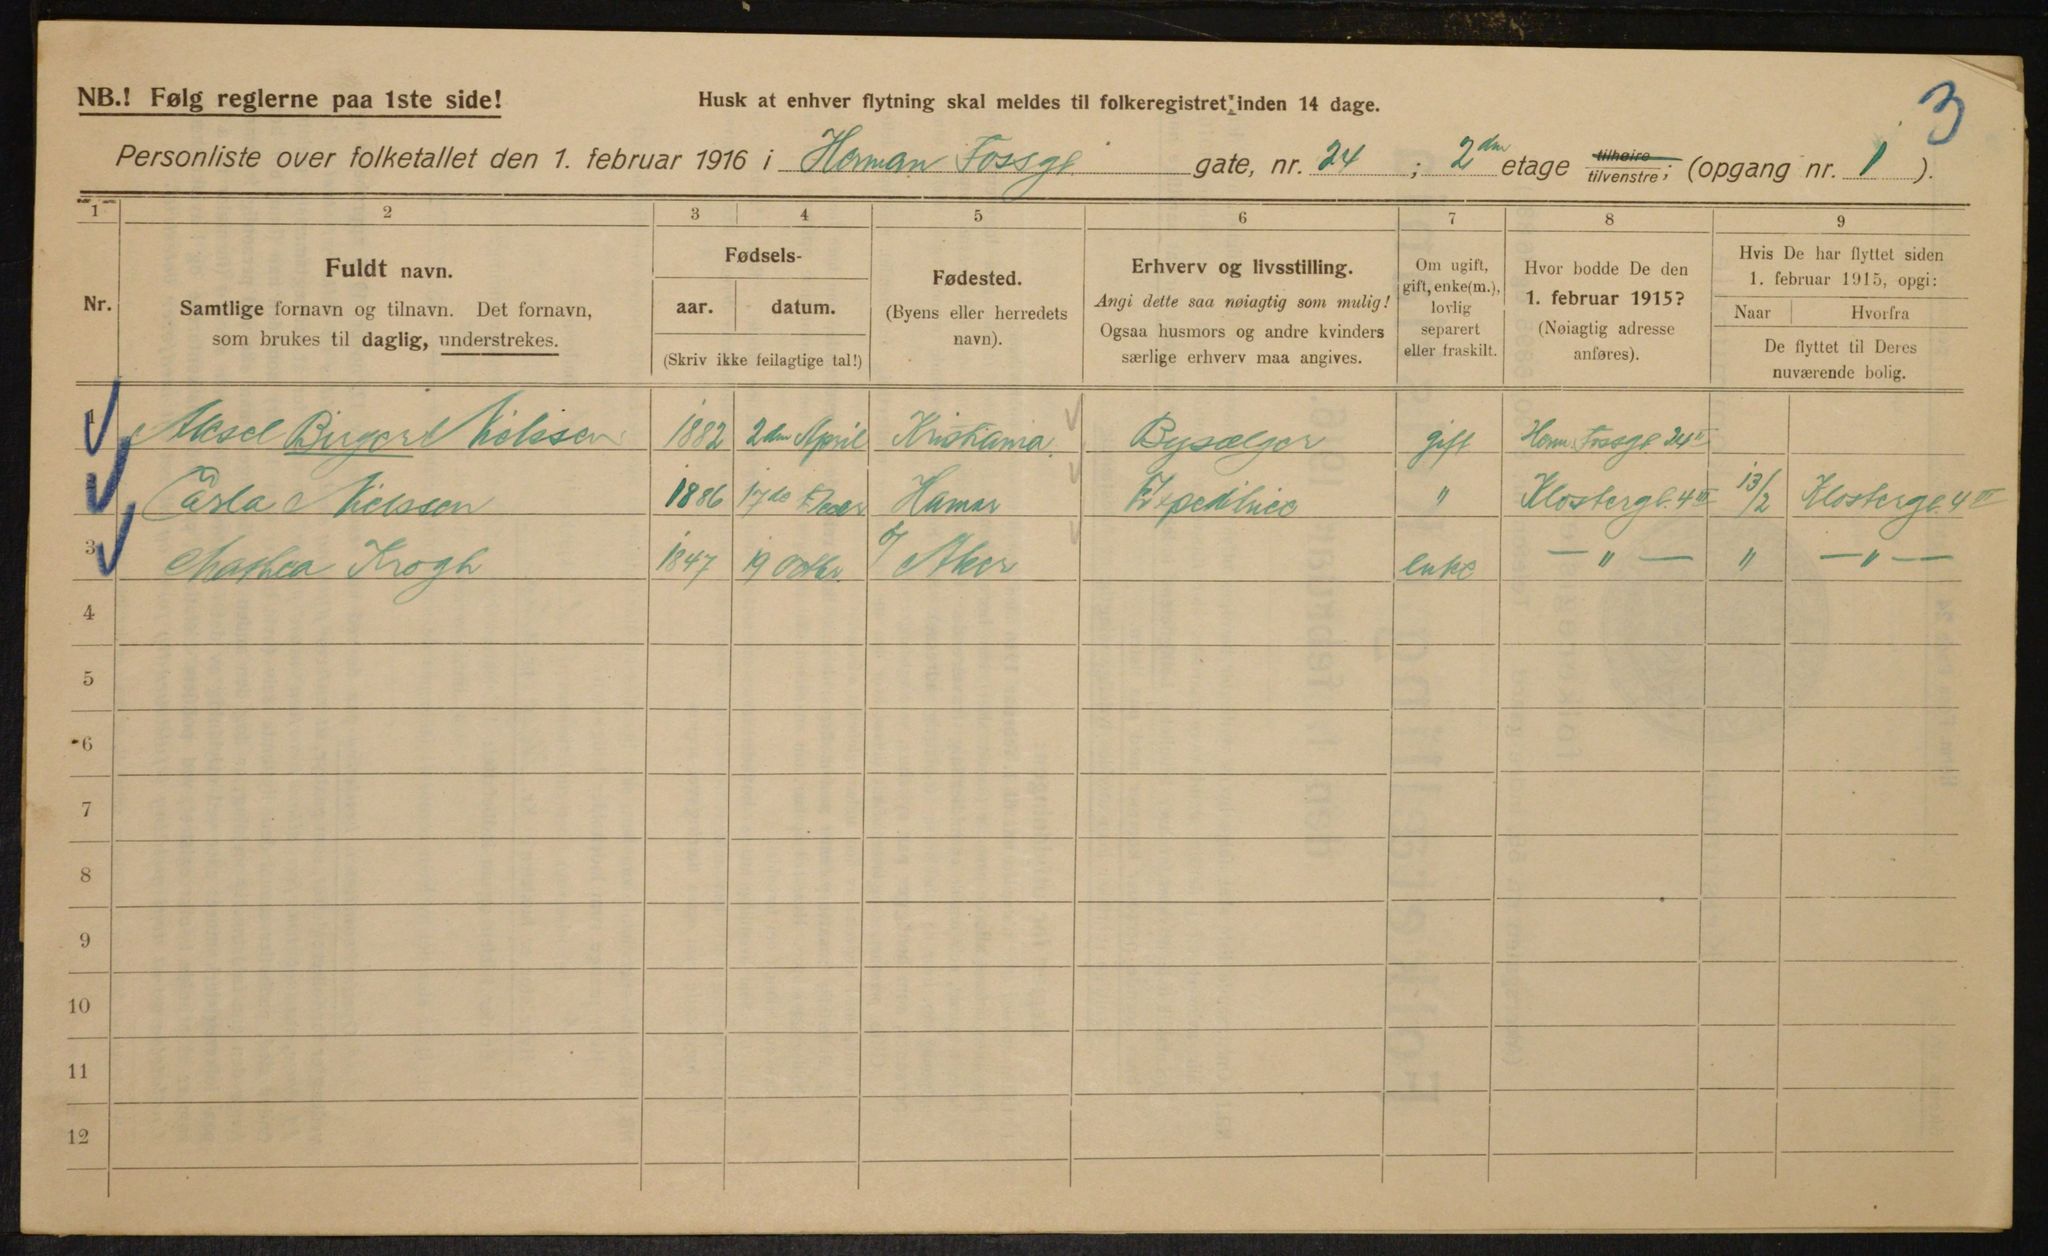 3
NB.! Følg reglerne paa 1ste side!
Husk at enhver flytning skal meldes til folkeregistret inden 14 dage.
Personliste over folketallet den 1. februar 1916 i Herman Fossgt gate, nr. 24 ; 2den etage tilhøire tilvenstre; (opgang nr. 1 ).
1 2 3 4 5 6 7 8 9
Nr.
Fuldt navn.
Samtlige fornavn og tilnavn. Det fornavn,
som brukes til daglig, understrekes.
Fødsels-
aar. datum.
(Skriv ikke feilagtige tal!)
Fødested.
(Byens eller herredets
navn).
Erhverv og livsstilling.
Angi dette saa nøiagtig som mulig!
Ogsaa husmors og andre kvinders
særlige erhverv maa angives.
Om ugift,
gift, enke(m.),
lovlig
separert
eller fraskilt.
Hvor bodde De den
1. februar 1915?
(Nøiagtig adresse
anføres).
Hvis De har flyttet siden
1. februar 1915, opgi:
Naar Hvorfra
De flyttet til Deres
nuværende bolig.
1 Aksel Birger Nielssen 1882 2den April Kristiania. Bysælger gift Herm. Fossgt 24 II
2 Nielssen 1886 17de Hamar Expeditrice " Klostergt. 4 III 13/2 Klostergt. 4 III
3 Mathea Krogh 1847 19 Aker enke — " — " — " —
4
5
6
7
8
9
10
11
12